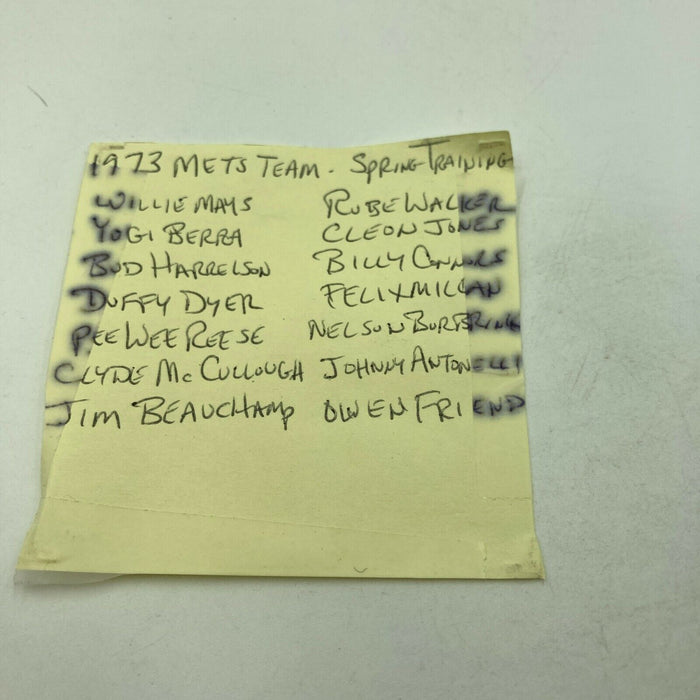 1973 METS TEAM - SPRING TRAINING
WILLIE MAYS RUBE WALKER
YOGI BERRA CLEON JONES
BUD HARRELSON BILLY CONNORS
DUFFY DYER FELIX MILLAN
PEE WEE REESE NELSON BURBRINK
CLYDE McCULLOUGH JOHNNY ANTONELLI
JIM BEAUCHAMP OWEN FRIEND